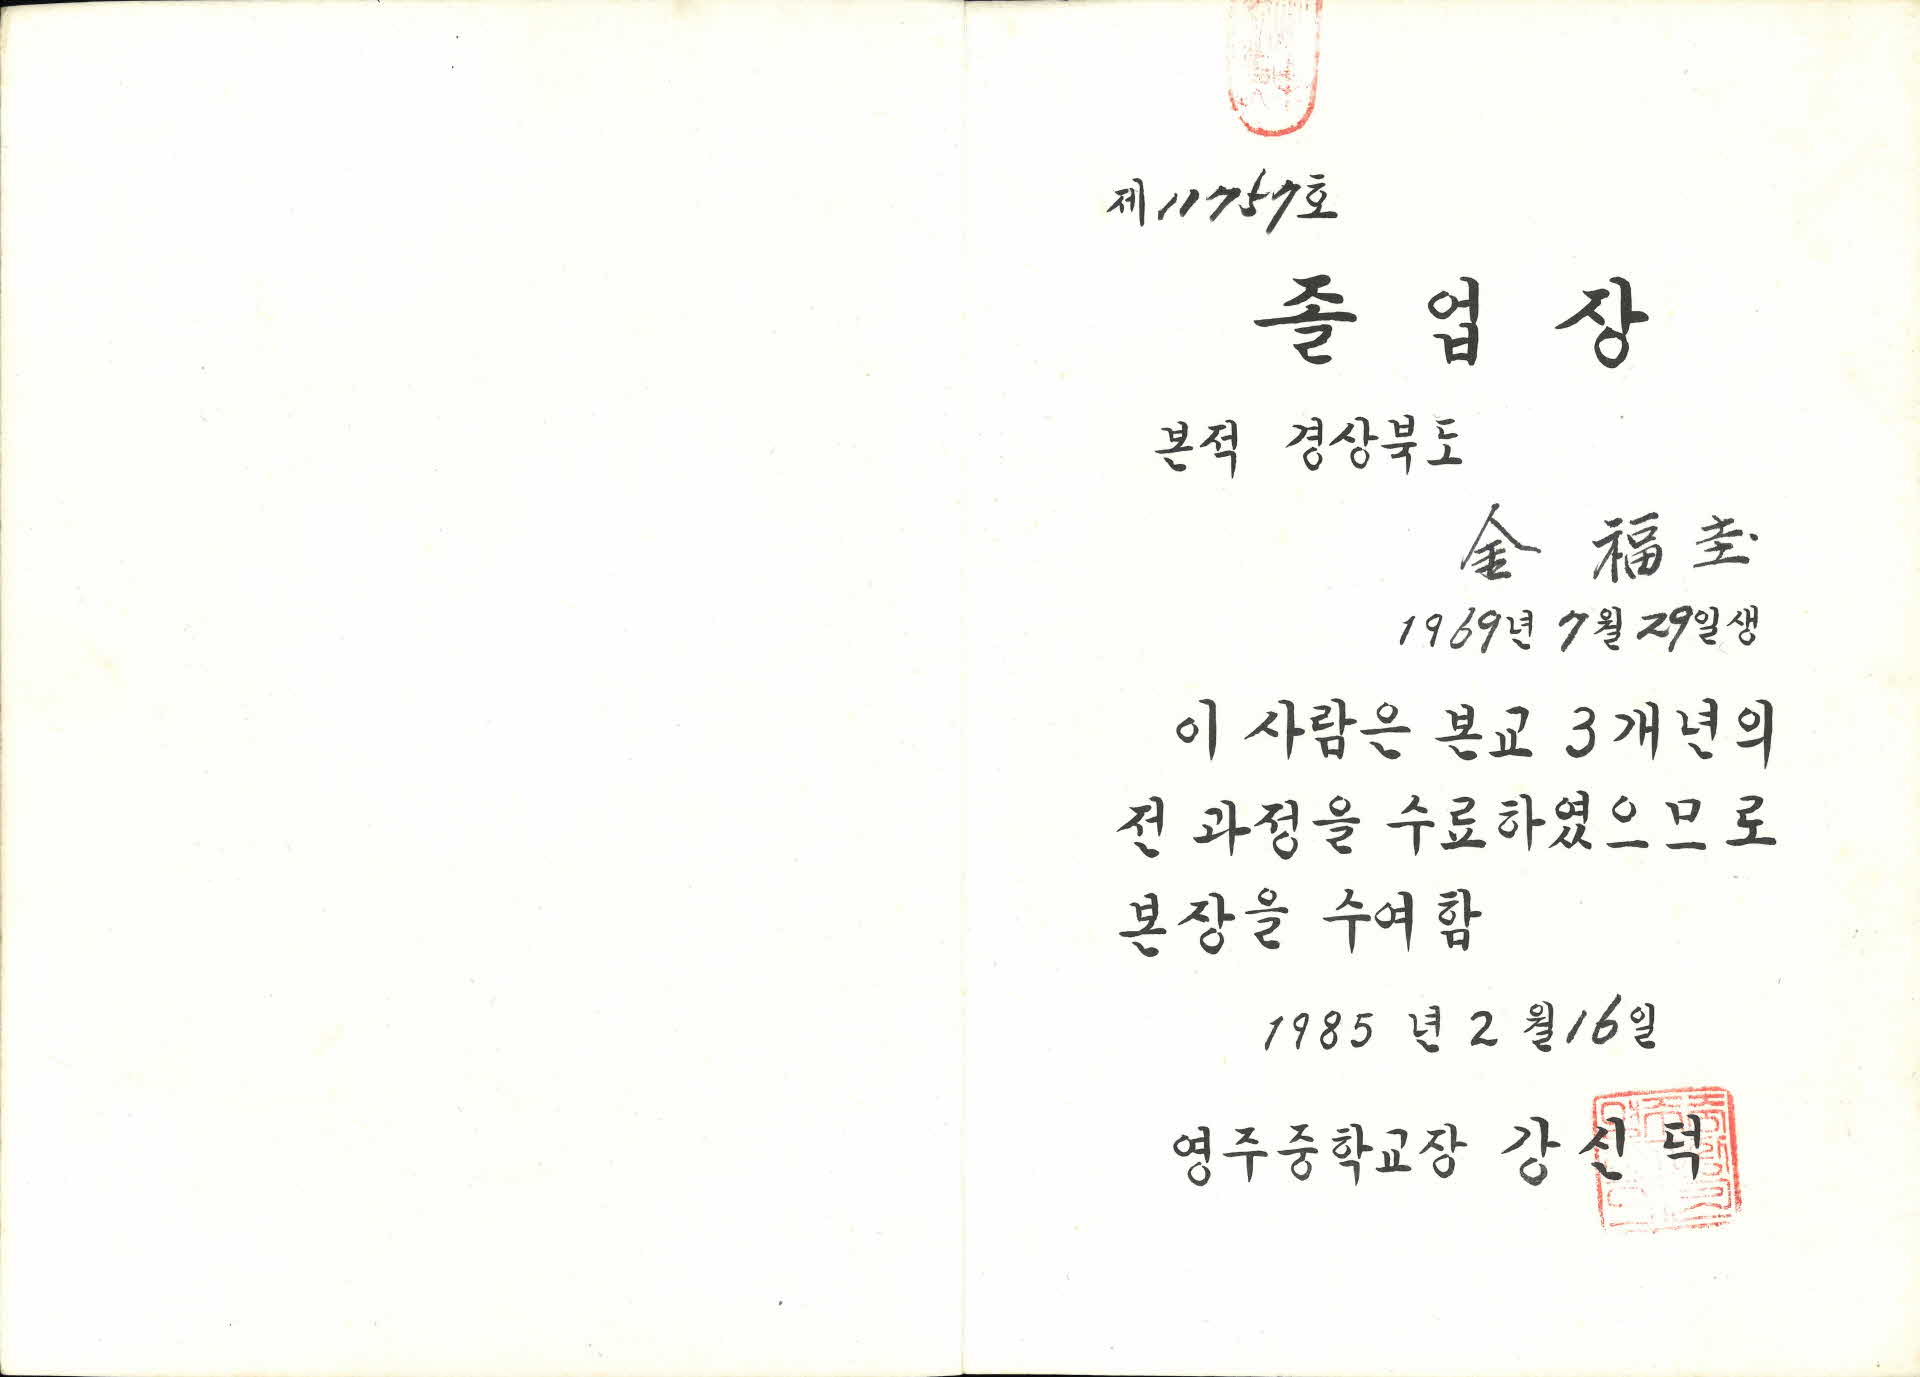 제11757호
졸 업 장
본적 경상북도
金 福 圭
1969년 7월 29일생
이 사람은 본교 3개년의
전 과정을 수료하였으므로
본장을 수여함
1985 년 2 월 16일
영주중학교장 강신덕